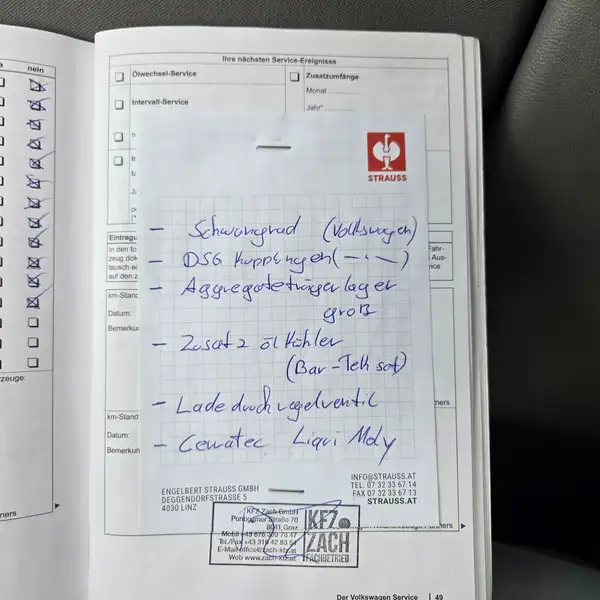 nein
Ihre nächsten Service-Ereignisse
Ölwechsel-Service
Zusatzumfänge
Monat
Jahr*
Intervall-Service
STRAUSS
- Schwungrad (Volkswagen)
- DSG Kupplungen (-"-)
- Aggregateträgerlager
groß
- Zusatz Ölkühler
(Bar-Tek sat)
- Ladedruckregelventil
- Ceratec Liqui Moly
Eintragu
In den fo
zeug dok
tausch e
auf den z
Fahr-
Aus-
nce
km-Stand
Datum:
Bemerku
zeuge:
ners
km-Stand
Datum:
Bemerkun
ners
ners
ENGELBERT STRAUSS GMBH
DEGGENDORFSTRASSE 5
4030 LINZ
INFO@STRAUSS.AT
TEL. 07 32 33 67 14
FAX 07 32 33 67 13
STRAUSS.AT
KFZ Zach GmbH
Puntigamer Straße 70
8041 Graz
Mobil +43 676 309 78 47
Tel./Fax +43 316 42 83 54
E-Mail office@zach-kfz.at
Web www.zach-kfz.at
KFZ
ZACH
FACHBETRIEB
Der Volkswagen Service | 49